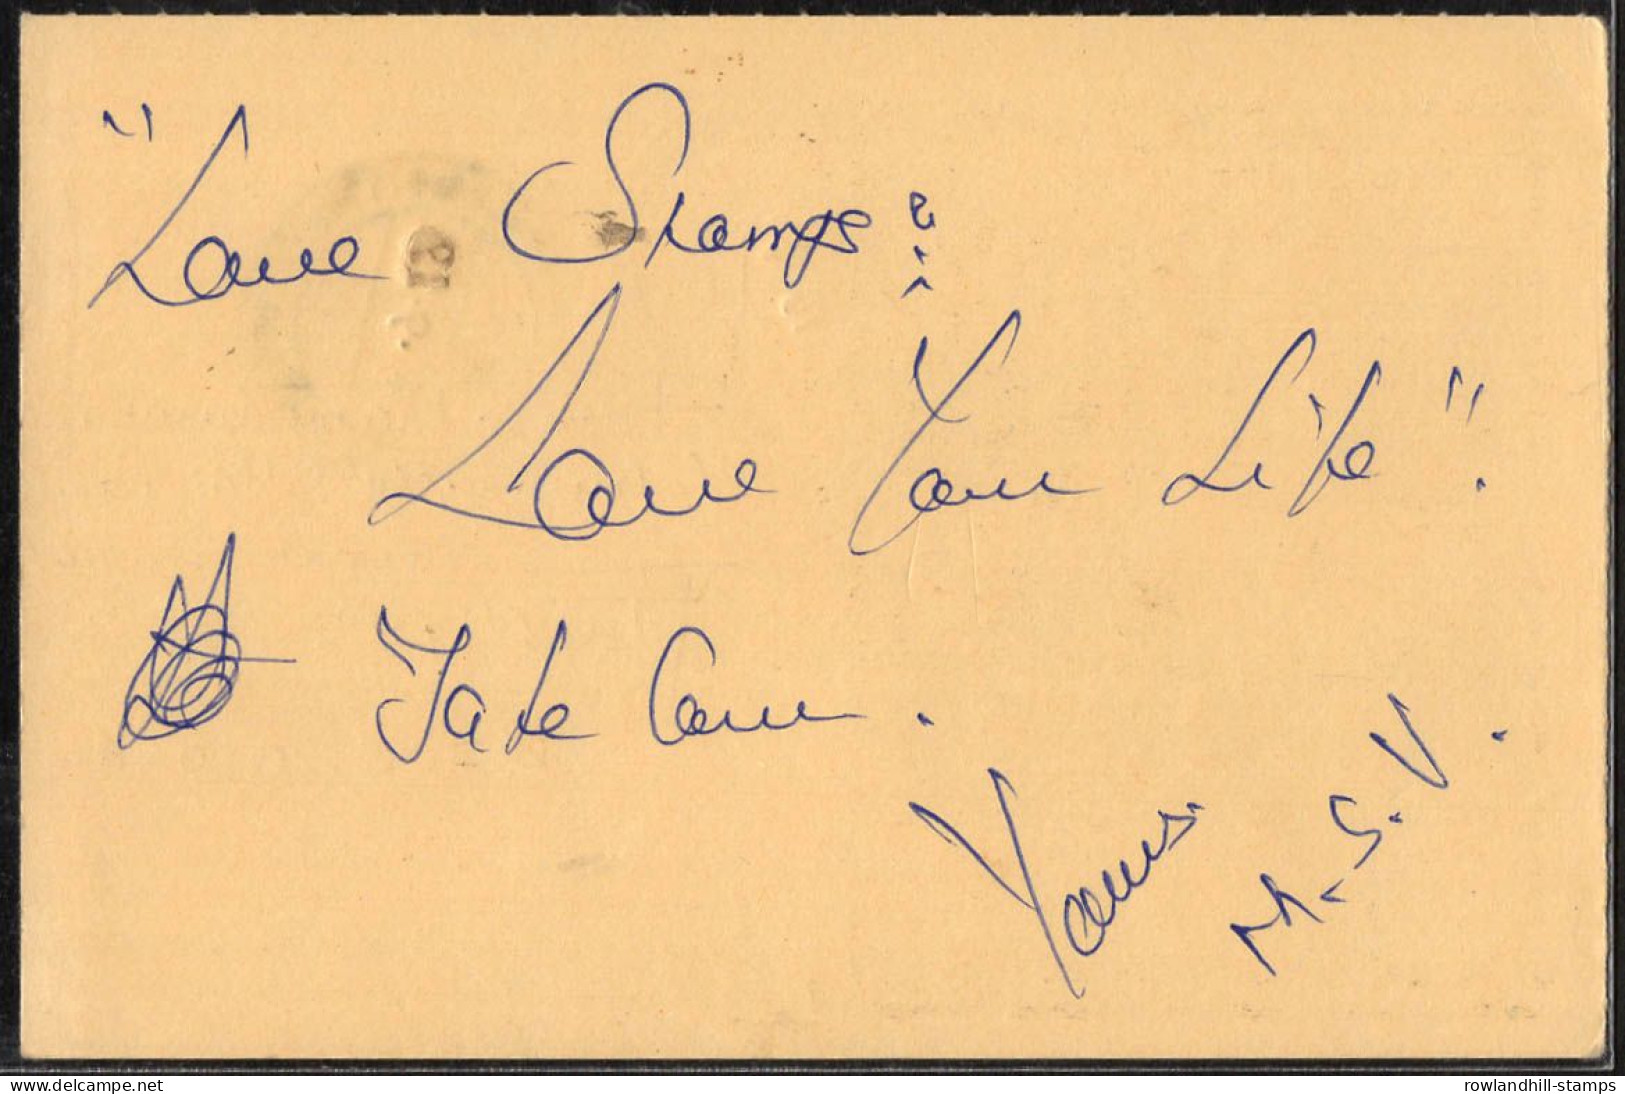 "Love Stamps:
Love Your Life".
Take Care.
Yours.
M.S.V.
www.delcampe.net
rowlandhill-stamps